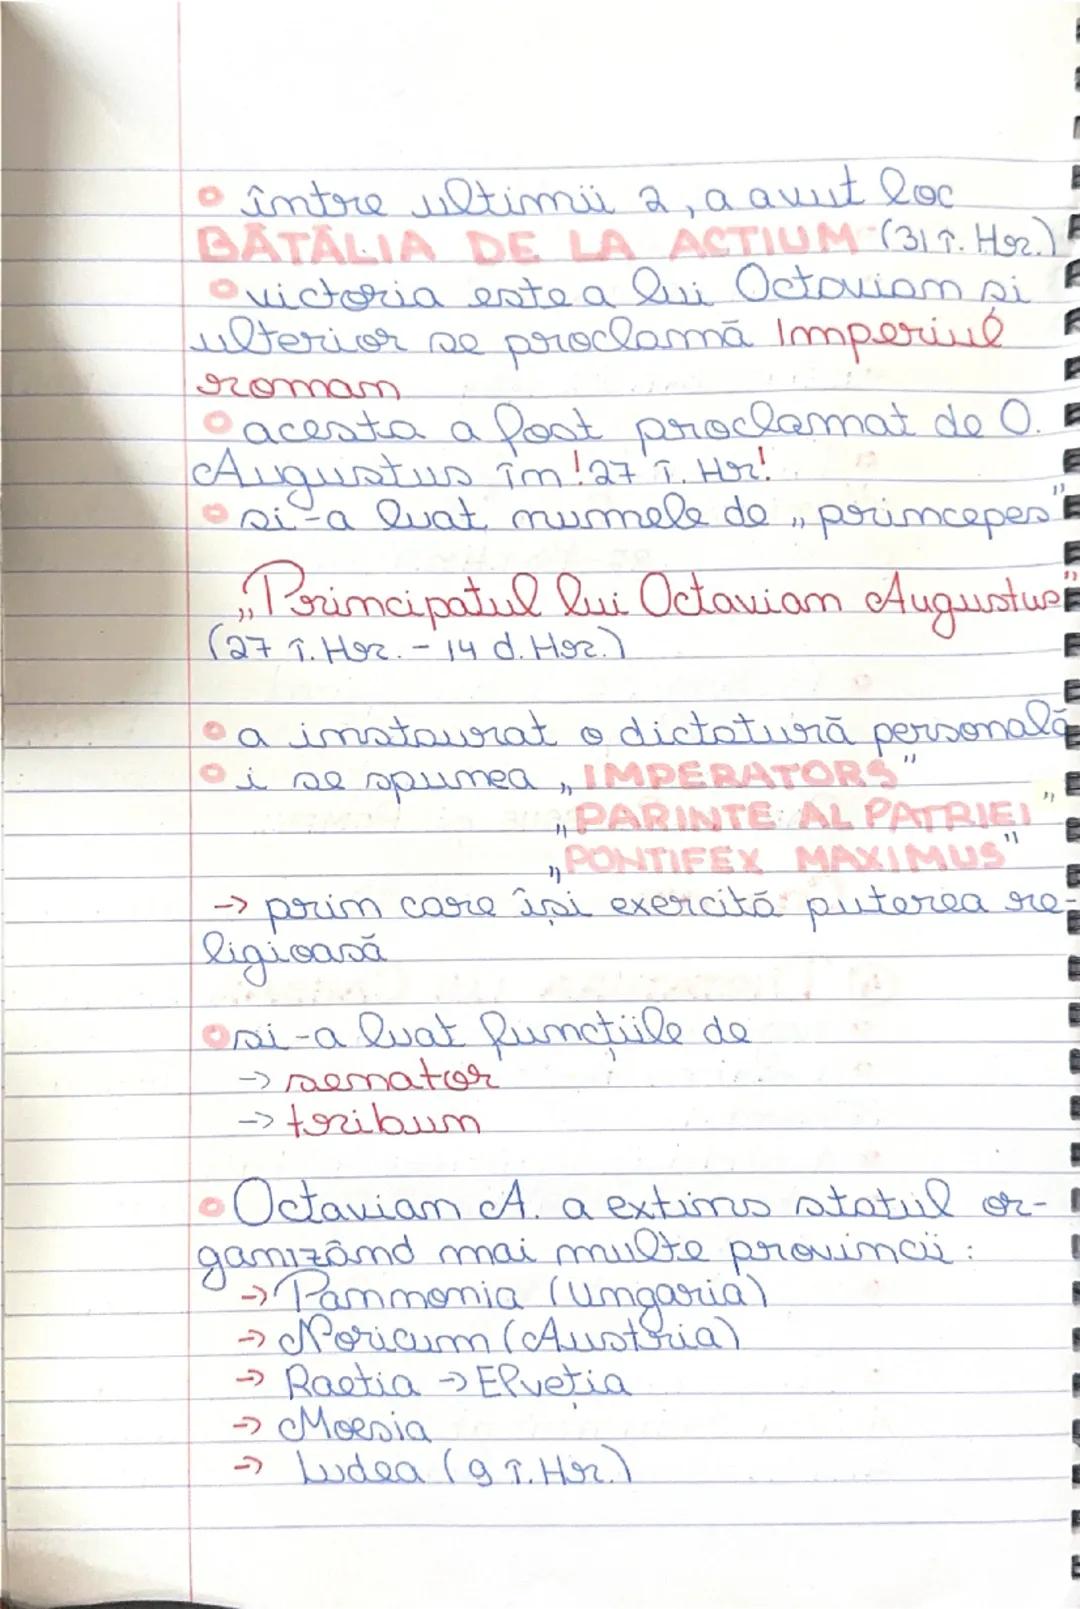 între ultimii 2, a avut loc
BĂTĂLIA DE LA ACTIUM (31 î. Hr.)
victoria este a lui Octavian și
ulterior se proclamă Imperiul
roman
acesta a fost proclamat de O.
Augustus în !27 î. Hr!
și-a luat numele de „princepes"
„Principatul lui Octavian Augustus"
(27 î. Hr. - 14 d. Hr.)
a instaurat o dictatură personală
i se spunea „IMPERATORS"
„PARINTE AL PATRIEI"
„PONTIFEX MAXIMUS"
→ prin care își exercită puterea re-
ligioasă
și-a luat funcțiile de
→ senator
→ tribun
Octavian A. a extins statul or-
ganizând mai multe provincii:
→ Pannonia (Ungaria)
→ Noricum (Austria)
→ Raetia → Elveția
→ Moesia
→ Iudea (9 î. Hr.)